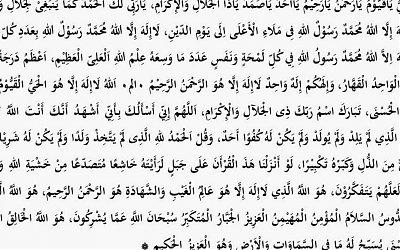 يَاقَيُّومُ يَارَحْمٰنُ يَارَحِيْمُ يَااَحَدُ يَاصَمَدُ يَاذَا الْجَلَالِ وَالْإِكْرَامِ، يَارَبِّي لَكَ الْحَمْدُ كَمَا يَنْبَغِيْ لِجَلَالِ
اللّٰهُ مُحَمَّدٌ رَسُوْلُ اللّٰهِ فِي مَلَاءِ الْأَعْلَى إِلَى يَوْمِ الدِّيْنِ، لَاإِلٰهَ إِلَّا اللّٰهُ مُحَمَّدٌ رَسُوْلُ اللّٰهِ بِعَدَدِ كُلِّ
إِلَّا اللّٰهُ مُحَمَّدٌ رَسُوْلُ اللّٰهِ فِي كُلِّ لَمْحَةٍ وَنَفَسٍ عَدَدَ مَا وَسِعَهُ عِلْمُ اللّٰهِ الْعَلِيِّ الْعَظِيْمِ، اَعْظَمُ دَرَجَةً
الْوَاحِدُ الْقَهَّارُ، وَإِلٰهُكُمْ إِلٰهٌ وَاحِدٌ لَاإِلٰهَ إِلَّا هُوَ الرَّحْمٰنُ الرَّحِيْمُ ۰ الٓم ۰ اَللّٰهُ لَاإِلٰهَ إِلَّا هُوَ الْحَيُّ الْقَيُّومُ
الْحُسْنَى، تَبَارَكَ اسْمُ رَبِّكَ ذِى الْجَلَالِ وَالْإِكْرَامِ، اَللّٰهُمَّ إِنِّي أَسْأَلُكَ بِأَنِّي أَشْهَدُ أَنَّكَ أَنْتَ اللّٰهُ
الَّذِي لَمْ يَلِدْ وَلَمْ يُوْلَدْ وَلَمْ يَكُنْ لَهُ كُفُوًا اَحَدٌ، وَقُلِ الْحَمْدُ لِلّٰهِ الَّذِى لَمْ يَتَّخِذْ وَلَدًا وَلَمْ يَكُنْ لَهُ شَرِيْكٌ
مِنَ الذُّلِّ وَكَبِّرْهُ تَكْبِيْرًا، لَوْ أَنْزَلْنَا هٰذَ الْقُرْأٰنَ عَلَى جَبَلٍ لَرَأَيْتَهُ خَاشِعًا مُتَصَدِّعًا مِنْ خَشْيَةِ اللّٰهِ
لَعَلَّهُمْ يَتَفَكَّرُوْنَ، هُوَ اللّٰهُ الَّذِي لَاإِلٰهَ إِلَّا هُوَ عَالِمُ الْغَيْبِ وَالشَّهَادَةِ هُوَ الرَّحْمٰنُ الرَّحِيْمُ، هُوَ اللّٰهُ
الْقُدُّوسُ السَّلَامُ الْمُؤْمِنُ الْمُهَيْمِنُ الْعَزِيْزُ الْجَبَّارُ الْمُتَكَبِّرُ سُبْحَانَ اللّٰهِ عَمَّا يُشْرِكُوْنَ، هُوَ اللّٰهُ الْخَالِقُ
يُسَبِّحُ لَهُ مَا فِي السَّمَاوَاتِ وَالْأَرْضِ وَهُوَ الْعَزِيْزُ الْحَكِيْمُ *